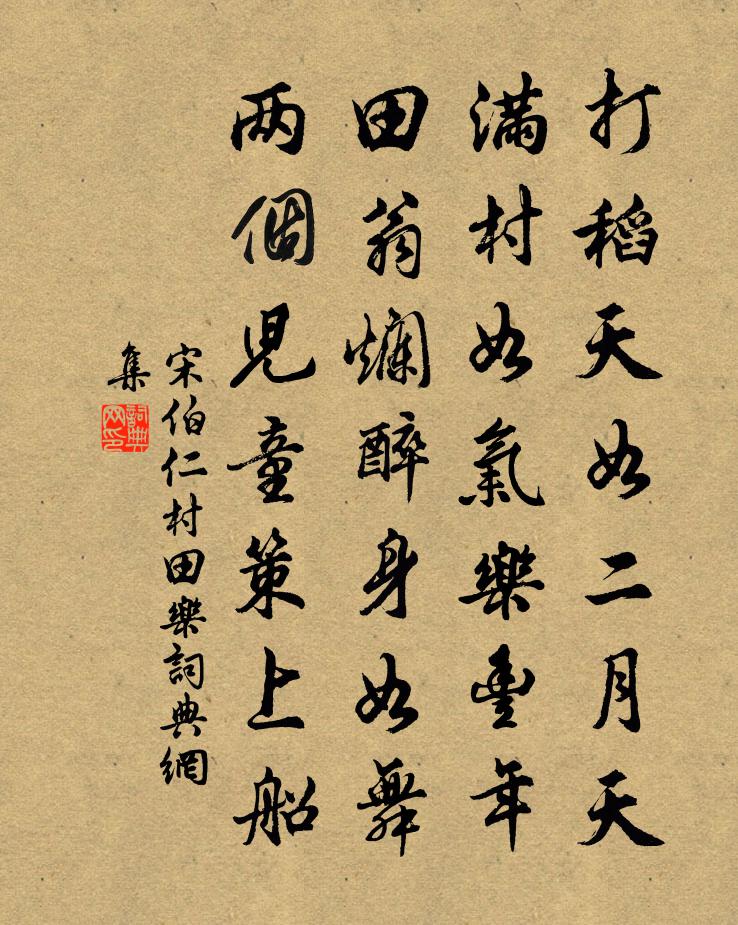 打稻天如二月天
滿村如氣樂豐年
田翁爛醉身如舞
两個兒童策上船
宋伯仁村田樂詞典網
集
詞典网印